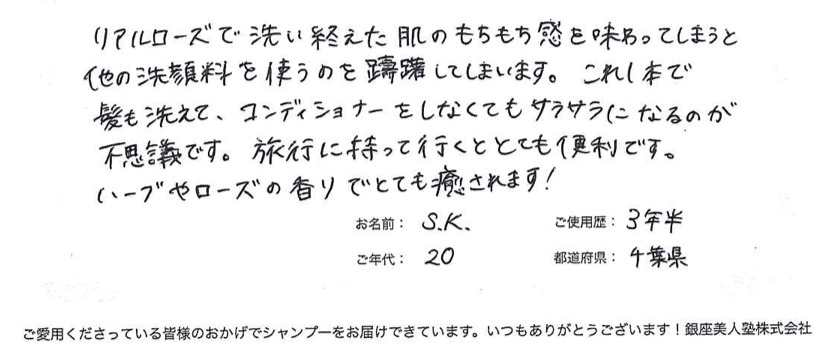 リアルローズで洗い終えた肌のもちもち感を味わってしまうと
他の洗顔料を使うのを躊躇してしまいます。これ1本で
髪も洗えて、コンディショナーをしなくてもサラサラになるのが
不思議です。旅行に持って行くととても便利です。
ハーブやローズの香りでとても癒されます!
お名前: S.K. ご使用歴: 3年半
ご年代: 20 都道府県: 千葉県
ご愛用くださっている皆様のおかげでシャンプーをお届けできています。いつもありがとうございます!銀座美人塾株式会社